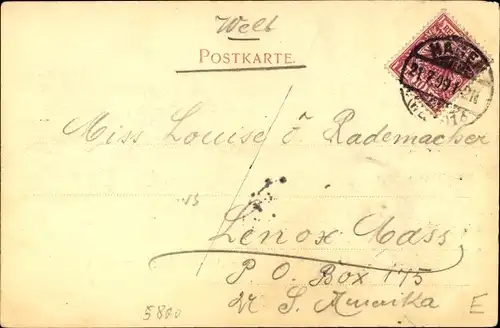 Welt
POSTKARTE.
Miss Louise v Rademacher
Lenox Mass
P O. Box 175
S. Amerika
5800
E